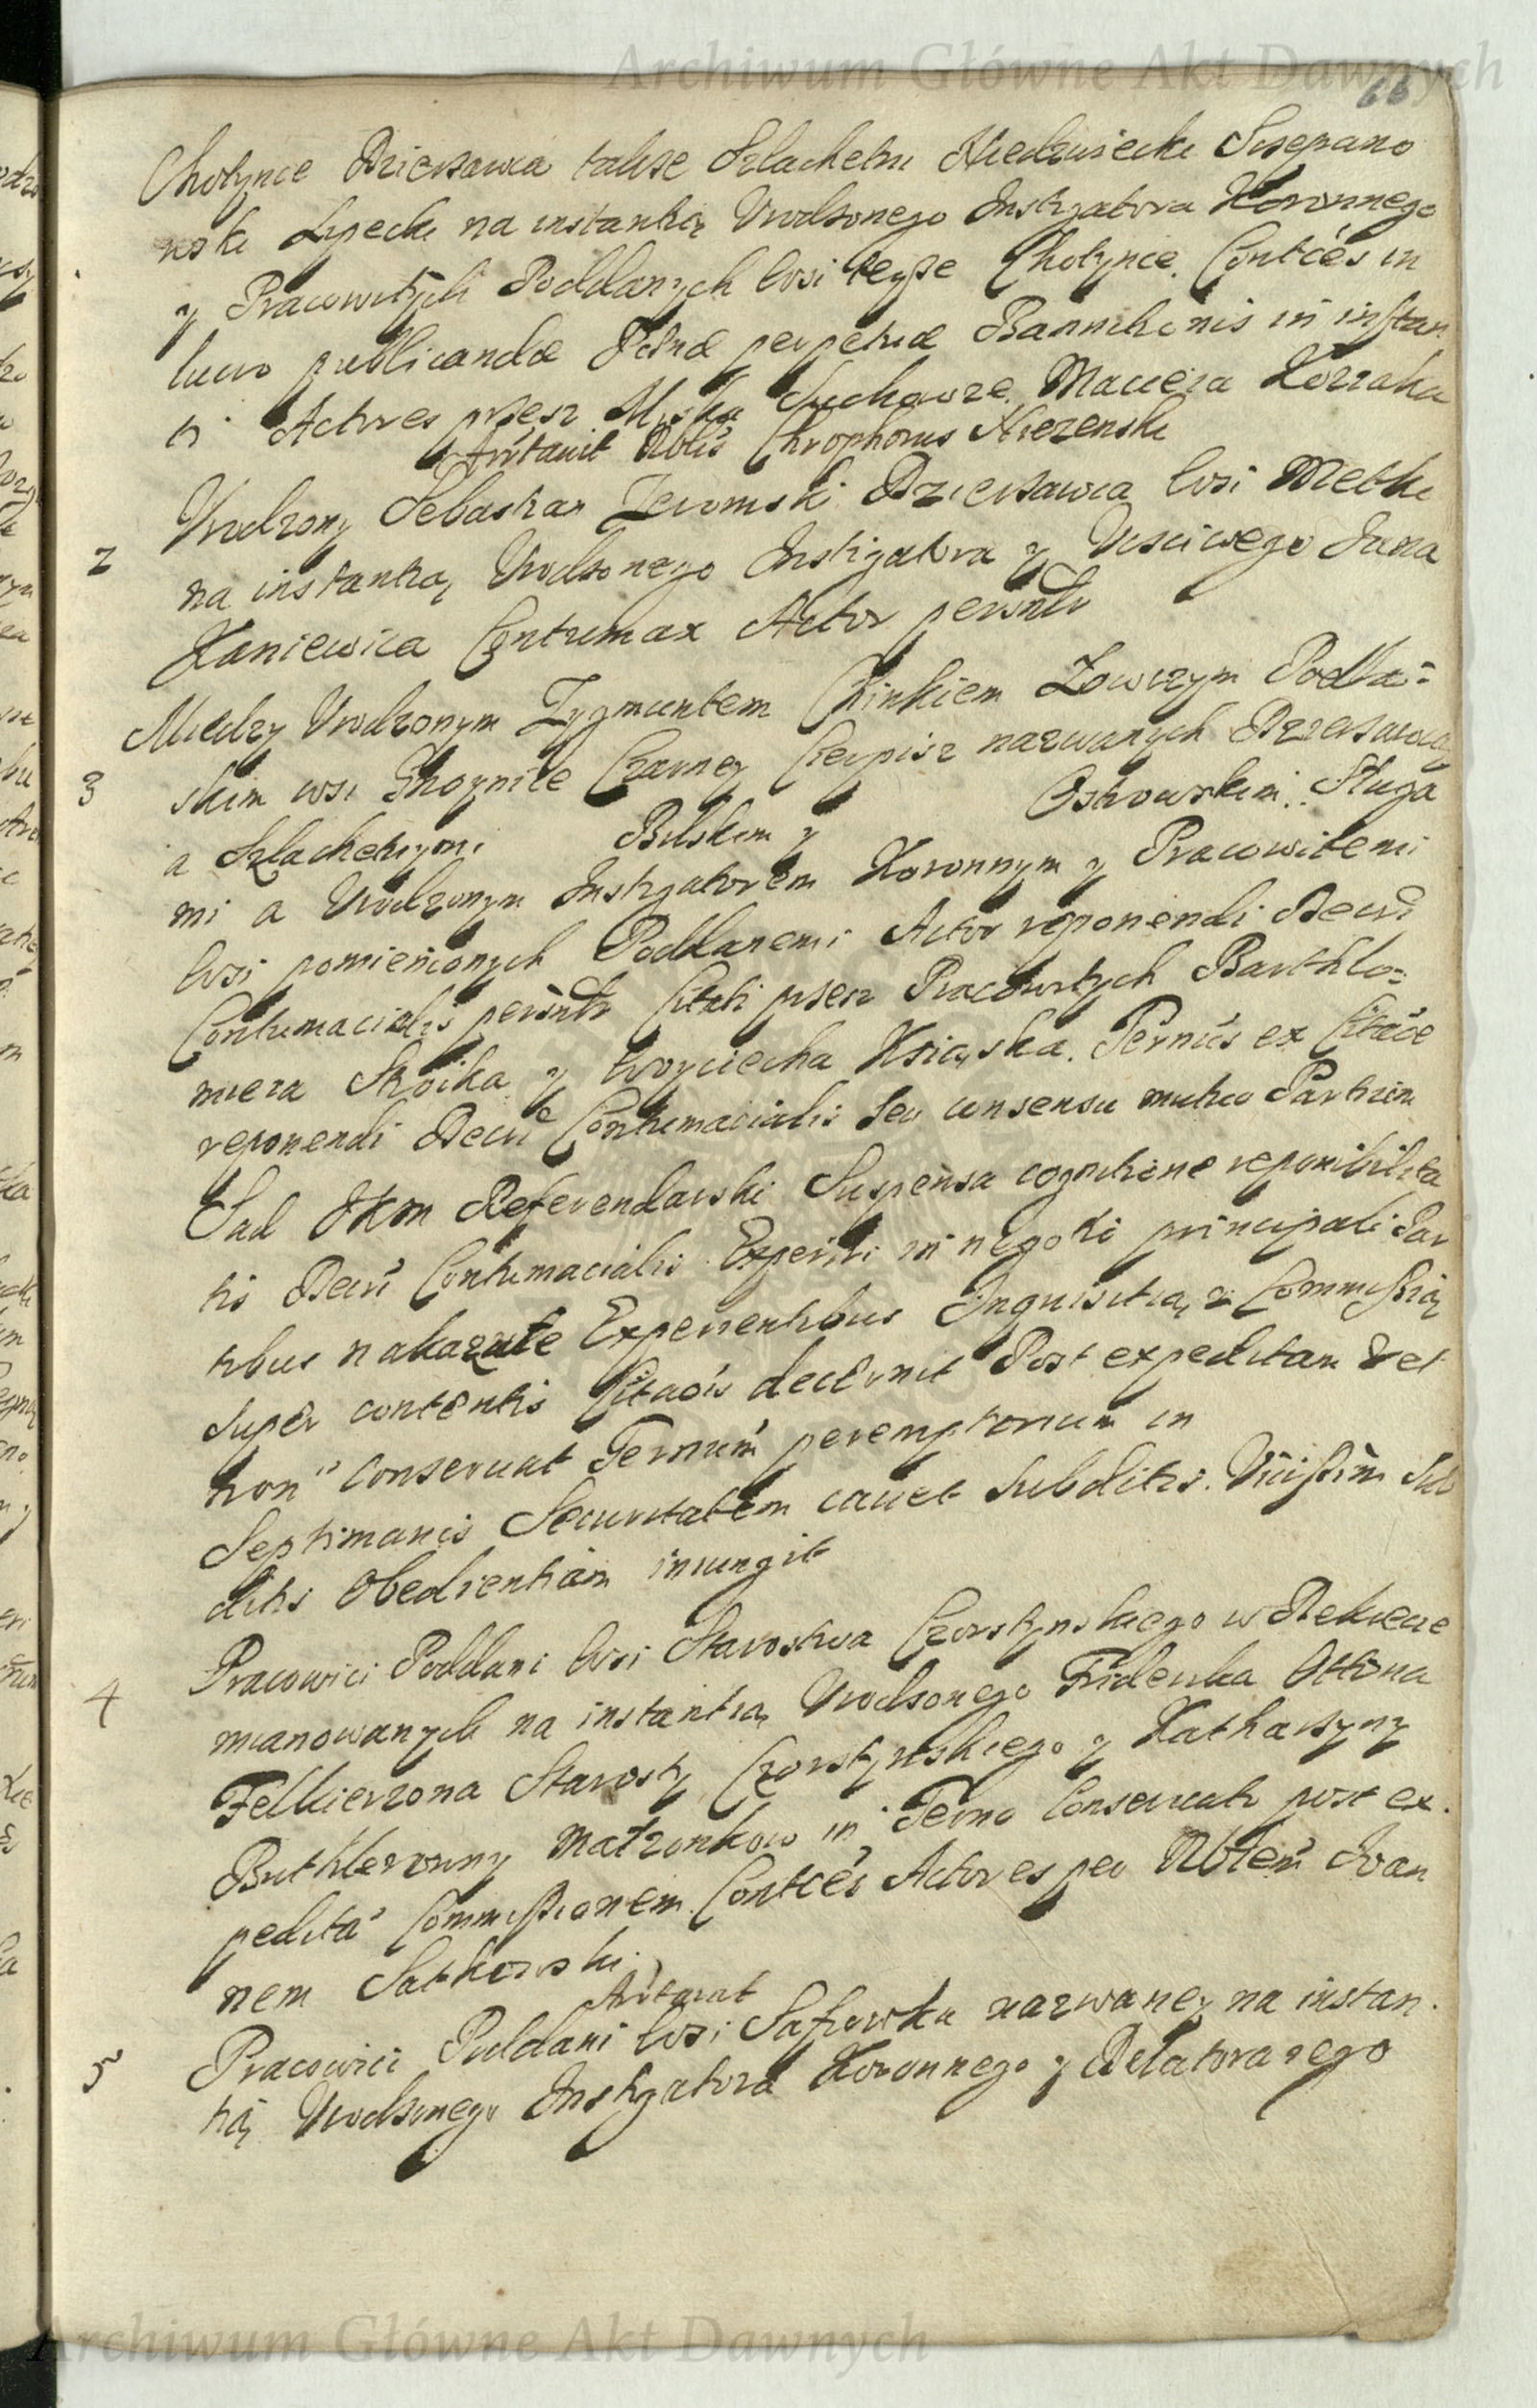 Archiwum Główne Akt Dawnych
66
Chotynce Dzierzawca takze Szlachetni Niedzwiecki Szczepano
wski Lipecki na instantią Urodzonego Instygatora Koronnego
y Pracowitych Poddanych wsi teyze Chotynce. Contces in
lucro publicandæ Pœnæ perpetuæ Bannitionis in instan
ti Actores przez Macieia Kozzaka
Arrtauit Nblis Chrophorus Niezenski
2 Urodzony Sebastian Zeromski Dzierzawca wsi Metki
na instantią Urodzonego Instigatora y Ucsciwego Jana
Kaniewica Contumax Actor persntr
3 Między Urodzonym Zygmuntem Chinkiem Łowczym Podla=
skim wsi Choynice Czarney Cierpisz nazwanych Dzierzawcą
a Szlachetnymi Bilskim y Ostrowskim Sługa
mi a Urodzonym Instygatorem Koronnym y Pracowitemi
wsi pomienionych Poddanemi Actor reponendi Decri
Contumacialis persntr Citati przez Pracowitych Barthlo=
mieia Skoika y Woyciecha Ksiąska. Pernús ex Citaõe
reponendi Decri Contumacialis seu consensu mutuo Partium
Sąd JKM Referendarski Suspensa cognitione reponibilita
tis Decri Contumacialis Experiri in negotii principali Par
tibus nakazule Experientibus Inquisitią y Commissią
super contentis Citaõis decernit Post expeditam vel
non conseruat Termnũ peremptorium in
Septimanis Securitatem cauet subditis. Vicissim Sub
ditis Obedientiam iniungit
4 Pracowici Poddani wsi Starostwa Czorstynskiego w Dekrecie
mianowanych na instantią Urodzonego Friderika Ottona
Felkierzona Starosty Czorstynskiego y Katharzyny
Buthlerowny Małzonkow in Termo Conseruato post ex.
pedita Commissionem. Contces Actores per Nblem Joan
nem Satkowski
Arrtauit
5 Pracowici Poddani wsi Safrowka nazwaney na instan.
tią Urodzonego Instygatora Koronnego y Delatora iego
Archiwum Główne Akt Dawnych